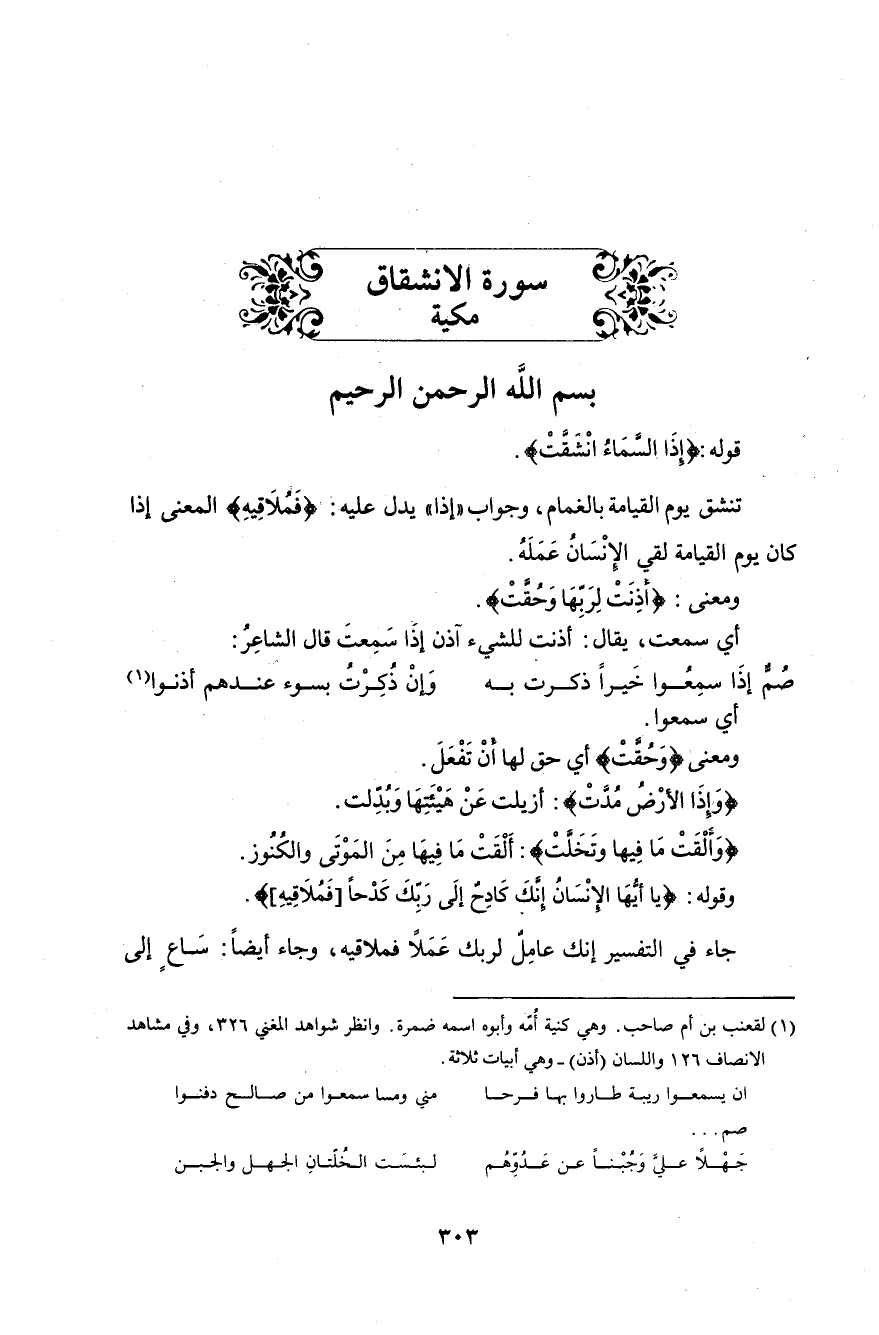 سورة الانشقاق
مكية
بسم اللَّه الرحمن الرحيم
قوله: ﴿إِذَا السَّمَاءُ انْشَقَّتْ﴾.
تنشق يوم القيامة بالغمام، وجواب «إذا» يدل عليه: ﴿فَمُلَاقِيهِ﴾ المعنى إذا
كان يوم القيامة لقي الإِنْسَانُ عَمَلَهُ.
ومعنى: ﴿أَذِنَتْ لِرَبِّهَا وَحُقَّتْ﴾.
أي سمعت، يقال: أذنت للشيء آذن إذَا سَمِعتَ قال الشاعِرُ:
صُمٌّ إذَا سمِعُوا خَيراً ذكرت به وَإنْ ذُكِرْتُ بسوء عندهم أذنوا(١)
أي سمعوا.
ومعنى ﴿وَحُقَّتْ﴾ أي حق لها أَنْ تَفْعَلَ.
﴿وَإِذَا الأَرْضُ مُدَّتْ﴾: أزيلت عَنْ هَيْئَتِهَا وَبُدِّلت.
﴿وَأَلْقَتْ مَا فِيها وتَخَلَّتْ﴾: أَلْقَتْ مَا فِيهَا مِنَ المَوْتَى والكُنُوز.
وقوله: ﴿يا أيُّهَا الإِنْسَانُ إِنَّكَ كَادِحٌ إلَى رَبِّكَ كَدْحاً [فَمُلَاقِيهِ]﴾.
جاء في التفسير إنك عامِلٌ لربك عَمَلًا فملاقيه، وجاء أيضاً: سَاعٍ إلى
(١) لقعنب بن أم صاحب. وهي كنية أُمّه وأبوه اسمه ضمرة. وانظر شواهد المغني ٣٢٦، وفي مشاهد
الانصاف ١٢٦ واللسان (أذن) ـ وهي أبيات ثلاثة.
ان يسمعوا ريبة طاروا بها فرحا مني ومسا سمعوا من صالح دفنوا
صم...
جَهْلًا عليَّ وَجُبْناً عن عَدُوِّهُم لبئسَت الخُلّتانِ الجهل والجبن
٣٠٣